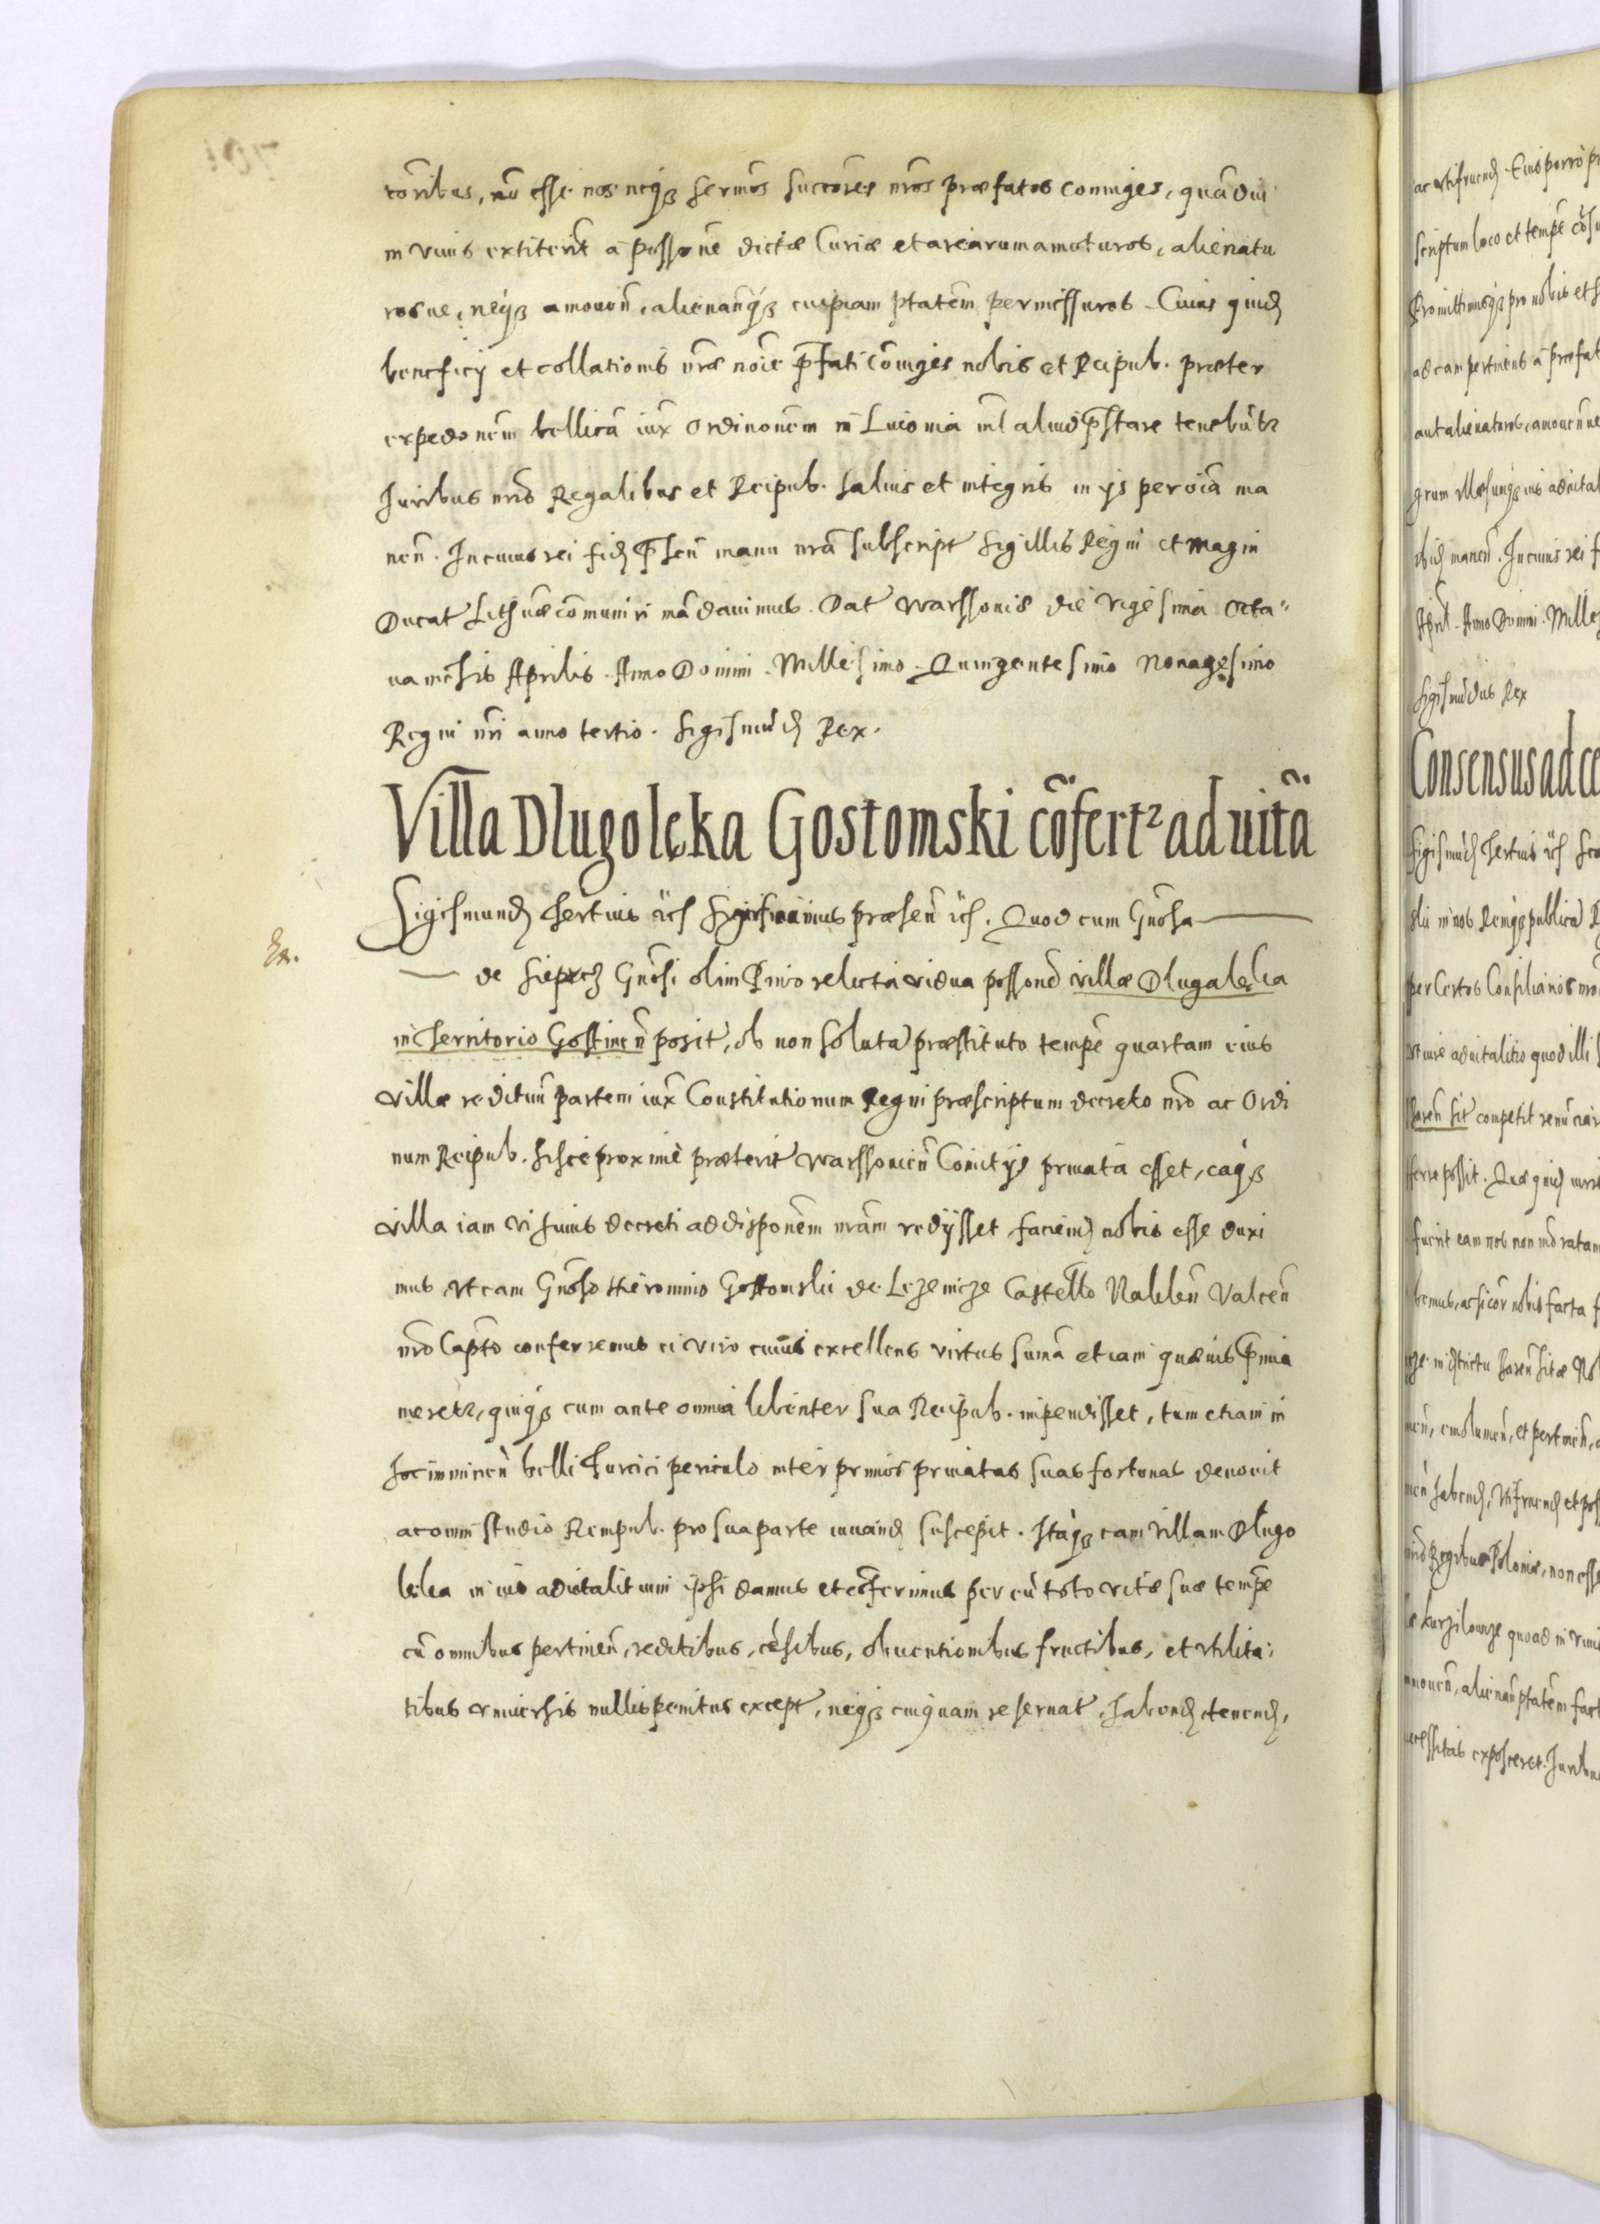 toribus, nō esse nos neqȝ Sermōs Succōres nr̄os præfatos coniuges, quādiu
in viuis extiterīt à possōne dictæ Curiæ et arearum amoturos, alienatu
rosue, neqȝ amouēn, alienanqȝ cuipiam ptātem permissuros. Cuius quid
beneficij et collationis nr̄æ noīe p̄fati coniuges nobis et Reipub. præter
expedōnem bellicā iux̄ Ordinōnem in Liuonia nīl aliud p̄stare tenebūtr
Juribus nr̄is Regalibus et Reipub. saluis et integris in ijs per oīa ma
nen. In cuius rei fid p̄sen manu nr̄a subscript Sigillis Regni et Magni
Ducat Lithuæ cōmuniri mādauimus. Dat Warssouiæ die Vigesima Octa"
ua mēsis Aprilis. Anno Domini. Millesimo. Quingentesimo Nonagesimo
Regni nr̄i anno tertio. Sigismūd Rex.
Villa Dlugolęka Gostomski cōfertr ad uitā
Sigismund Tertius etc Significamus præsen etc. Quod cum Gnōsa
En.
de Gnōsi olim relicta vidua possōne villæ Dlugalęka
in Territorio Gostinen posit, ob non solutā præstituto tempe quartam eius
villæ redituum partem iux̄ Constitutionum Regni præscriptum decreto nr̄o ac Ordi
num Reipub. hisce proxime præterit Warssouien Comitijs priuata esset, eaqȝ
villa iam vi huius decreti ad disponem nr̄am redijsset, faciend nobis esse duxi
mus vt eam Gnōso Hieronimo Gostomski de Lezenicze Castello Naklen Valcen
nr̄o Capto conferremus ei viro cuius excellens virtus sumā etiam quæuis p̄mia
meretr, quiqȝ cum ante omnia libenter sua Reipub. impendisset, tum etiam in
hoc imminen belli Turcici periculo inter primos priuatas suas fortunas deuouit
ac omni studio Rempub. pro sua parte iuuand suscepit. Itaqȝ eam villam Dlugo
lęka in ius aduitalitium ipsi damus et cōferimus per eū toto vitæ suæ tempe
cū omnibus pertinen, reditibus, cēsibus, obuentionibus fructibus, et vtilita:
tibus vniuersis nullis penitus except, neqȝ cuiquam reseruat, habend, tenend,
ac vtifruend. Eius porro
scriptum loco et tempe
Promittimusqȝ pro nobis et
ad eam pertinens à præfat
aut alienaturos, amouen
Anno Domini. Mille
Sigismūdus Rex
Consensus ad ce
Sigismūd Tertius etc
in nos Remqȝ publicā
per Certos Consiliarios
iure aduitalitio quod illi
sit competit
ferre possit. Quæ quid
fuerit eam nos non mō ratam
nobis facta
habend, vtifruend et
Regibus Poloniæ, non esse
quoad in viui
amouen, alienan ptātem
exposceret. Juribus